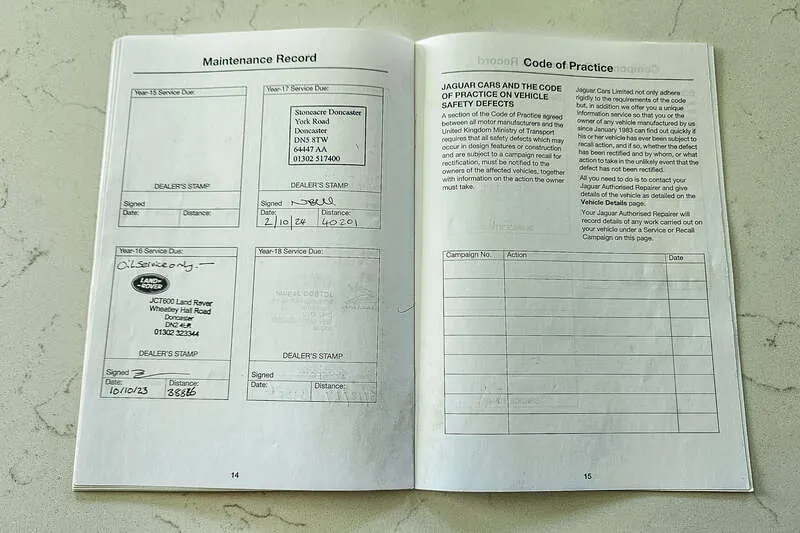 Maintenance Record
Year-15 Service Due:
DEALER'S STAMP
Signed
Date: Distance:
Year-17 Service Due:
Stoneacre Doncaster
York Road
Doncaster
DN5 8TW
64447 AA
01302 517400
DEALER'S STAMP
Signed
Date: Distance:
2/10/24 40201
Year-16 Service Due:
Oil Service only.
LAND-
-ROVER
JCT600 Land Rover
Wheatley Hall Road
Doncaster
DN2 4LR
01302 323344
DEALER'S STAMP
Signed
Date: Distance:
10/10/23
Year-18 Service Due:
DEALER'S STAMP
Signed
Date: Distance:
14
Code of Practice
JAGUAR CARS AND THE CODE
OF PRACTICE ON VEHICLE
SAFETY DEFECTS
A section of the Code of Practice agreed
between all motor manufacturers and the
United Kingdom Ministry of Transport
requires that all safety defects which may
occur in design features or construction
and are subject to a campaign recall for
rectification, must be notified to the
owners of the affected vehicles, together
with information on the action the owner
must take.
Jaguar Cars Limited not only adhere
rigidly to the requirements of the code
but, in addition we offer you a unique
information service so that you or the
owner of any vehicle manufactured by us
since January 1983 can find out quickly if
his or her vehicle has ever been subject to
recall action, and if so, whether the defect
has been rectified and by whom, or what
action to take in the unlikely event that the
defect has not been rectified.
All you need to do is to contact your
Jaguar Authorised Repairer and give
details of the vehicle as detailed on the
Vehicle Details page.
Your Jaguar Authorised Repairer will
record details of any work carried out on
your vehicle under a Service or Recall
Campaign on this page.
Campaign No. Action Date
15